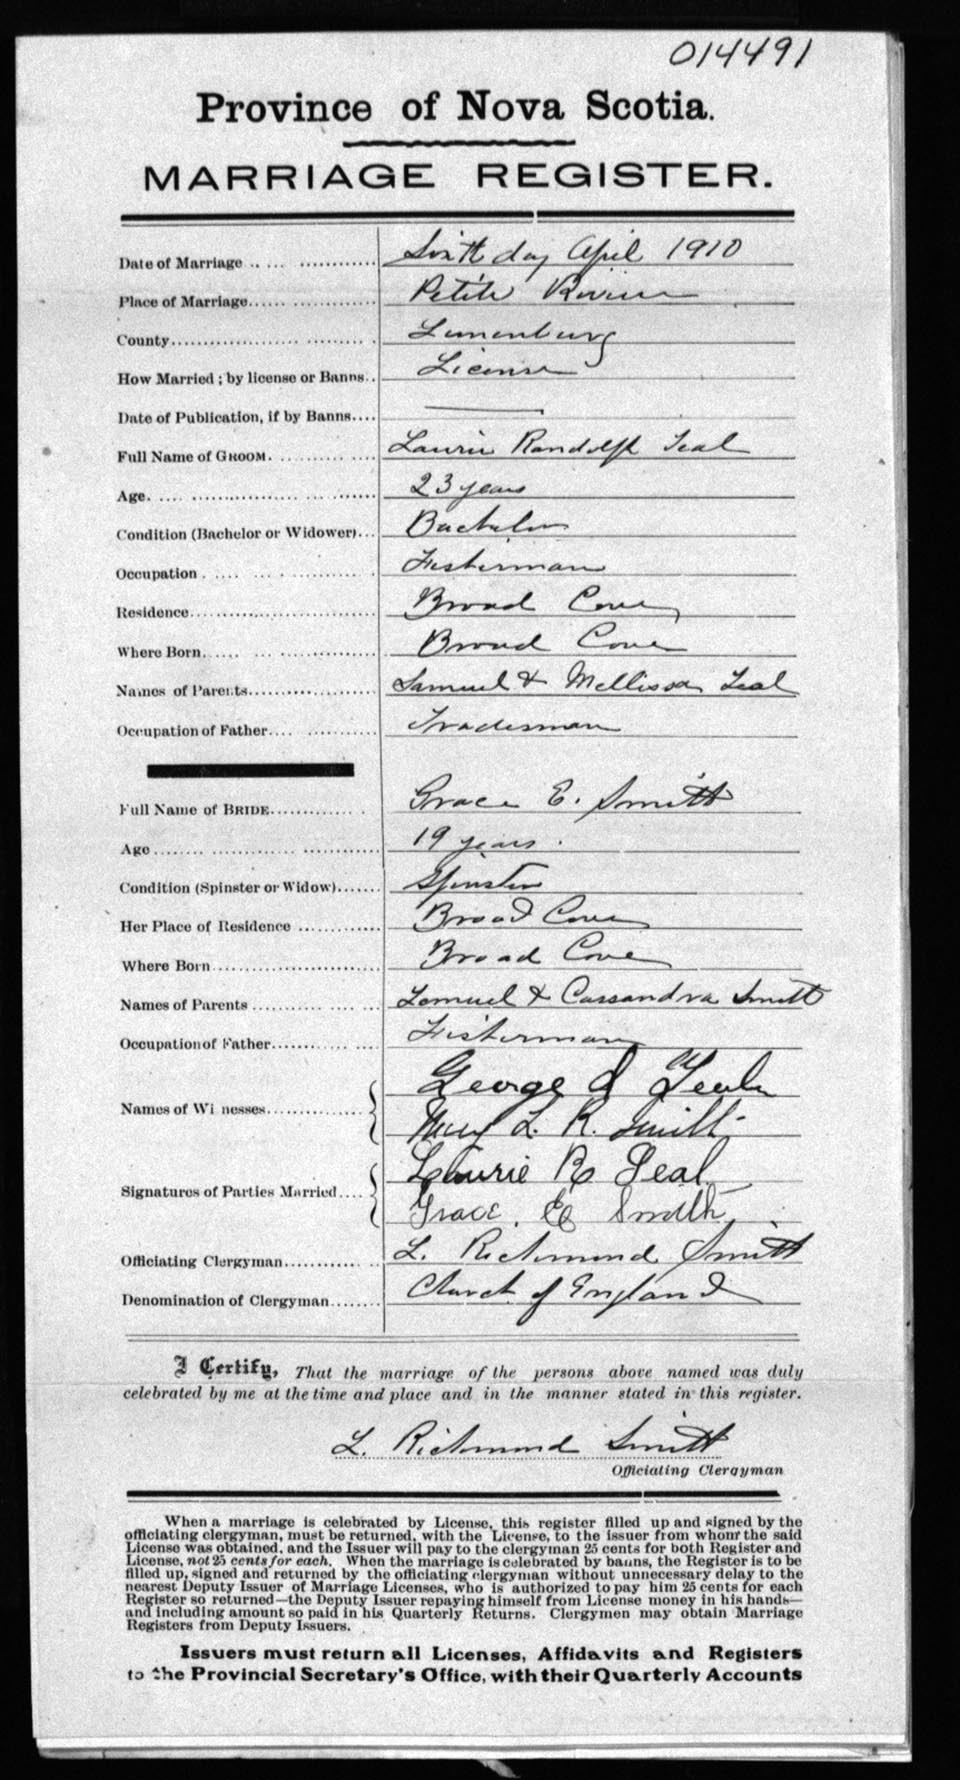 014491
Province of Nova Scotia.
MARRIAGE REGISTER.
Date of Marriage Sixth day April 1910
Place of Marriage Petite Riviere
County Lunenburg
How Married ; by license or Banns.. License
Date of Publication, if by Banns.... ———
Full Name of GROOM. Laurie Randolph Teal
Age. 23 years
Condition (Bachelor or Widower)... Bachelor
Occupation Fisherman
Residence Broad Cove
Where Born Broad Cove
Names of Parents Samuel & Mellissa Teal
Occupation of Father Tradesman
Full Name of BRIDE Grace E. Smith
Age 19 years.
Condition (Spinster or Widow) Spinster
Her Place of Residence Broad Cove
Where Born Broad Cove
Names of Parents Lemuel & Cassandra Smith
Occupation of Father Fisherman
Names of Witnesses George Teal
L. R. Smith
Signatures of Parties Married Laurie R Teal
Grace. E Smith
Officiating Clergyman L. Richmond Smith
Denomination of Clergyman Church of England
I Certify, That the marriage of the persons above named was duly
celebrated by me at the time and place and in the manner stated in this register.
L. Richmond Smith
Officiating Clergyman
When a marriage is celebrated by License, this register filled up and signed by the
officiating clergyman, must be returned, with the License, to the issuer from whom the said
License was obtained, and the Issuer will pay to the clergyman 25 cents for both Register and
License, not 25 cents for each. When the marriage is celebrated by banns, the Register is to be
filled up, signed and returned by the officiating clergyman without unnecessary delay to the
nearest Deputy Issuer of Marriage Licenses, who is authorized to pay him 25 cents for each
Register so returned—the Deputy Issuer repaying himself from License money in his hands—
and including amount so paid in his Quarterly Returns. Clergymen may obtain Marriage
Registers from Deputy Issuers.
Issuers must return all Licenses, Affidavits and Registers
to the Provincial Secretary's Office, with their Quarterly Accounts